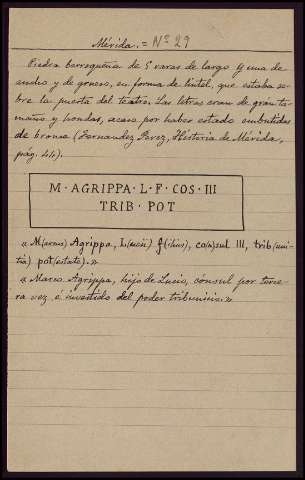 Mérida. = Nº 29
Piedra berroqueña de 5 varas de largo y una de
ancho y de grueso, en forma de lintel, que estaba so-
bre la puerta del teatro. Las letras eran de gran ta-
maño y hondas, acaso por haber estado embutidas
de bronce (Fernandez Perez, Historia de Mérida,
pág. 44).
M · AGRIPPA · L · F · COS · III
TRIB · POT
«M(arcus) Agrippa, L(ucii) f(ilius), co(n)sul III, trib(uni-
tia) pot(estate).»
«Marco Agrippa, hijo de Lucio, cónsul por terce-
ra vez, é investido del poder tribunicio.»